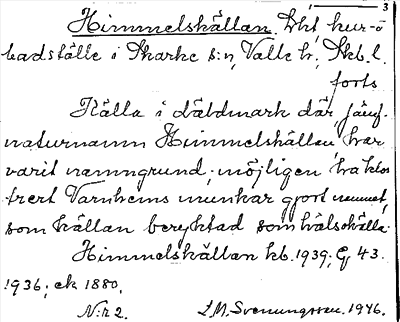 3
Himmelskällan. Lht, kur- o
badställe i Skarke s:n, Valle hd, Skb. l.
forts
Källa i däldmark där, jämf.
naturnamn Himmelskällan, har
varit namngrund; möjligen ha klos
trert Varnhems munkar gjort namnet,
som källan beryktad som hälsokälla.
Himmelskällan kb. 1939; Gj 43.
1936; ek 1880.
N:r 2. S.M. Svenungsson. 1946.